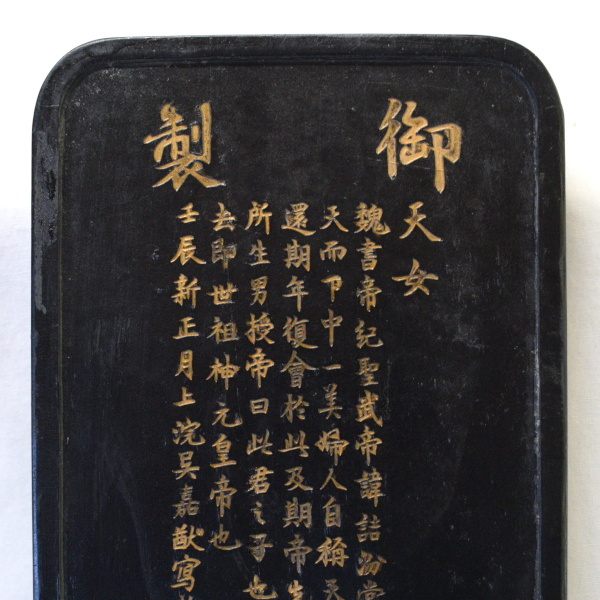 御製
天女
魏書帝紀聖武帝諱詰汾嘗
天而下中一美婦人自稱天
還期年復會於此及期帝先
所生男授帝曰此君之子也
去即世祖神元皇帝也
壬辰新正月上浣吳嘉猷寫